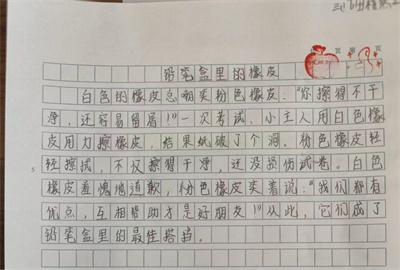 铅笔盒里的橡皮
白色的橡皮总嘲笑粉色橡皮："你擦得不干
净，还容易留屑！"一次考试，小主人用白色橡
皮用力擦橡皮，结果纸破了个洞。粉色橡皮轻
轻擦拭，不仅擦得干净，还没损伤试卷。白色
橡皮羞愧地道歉，粉色橡皮笑着说："我们都有
优点，互相帮助才是好朋友！"从此，它们成了
铅笔盒里的最佳搭档。
5